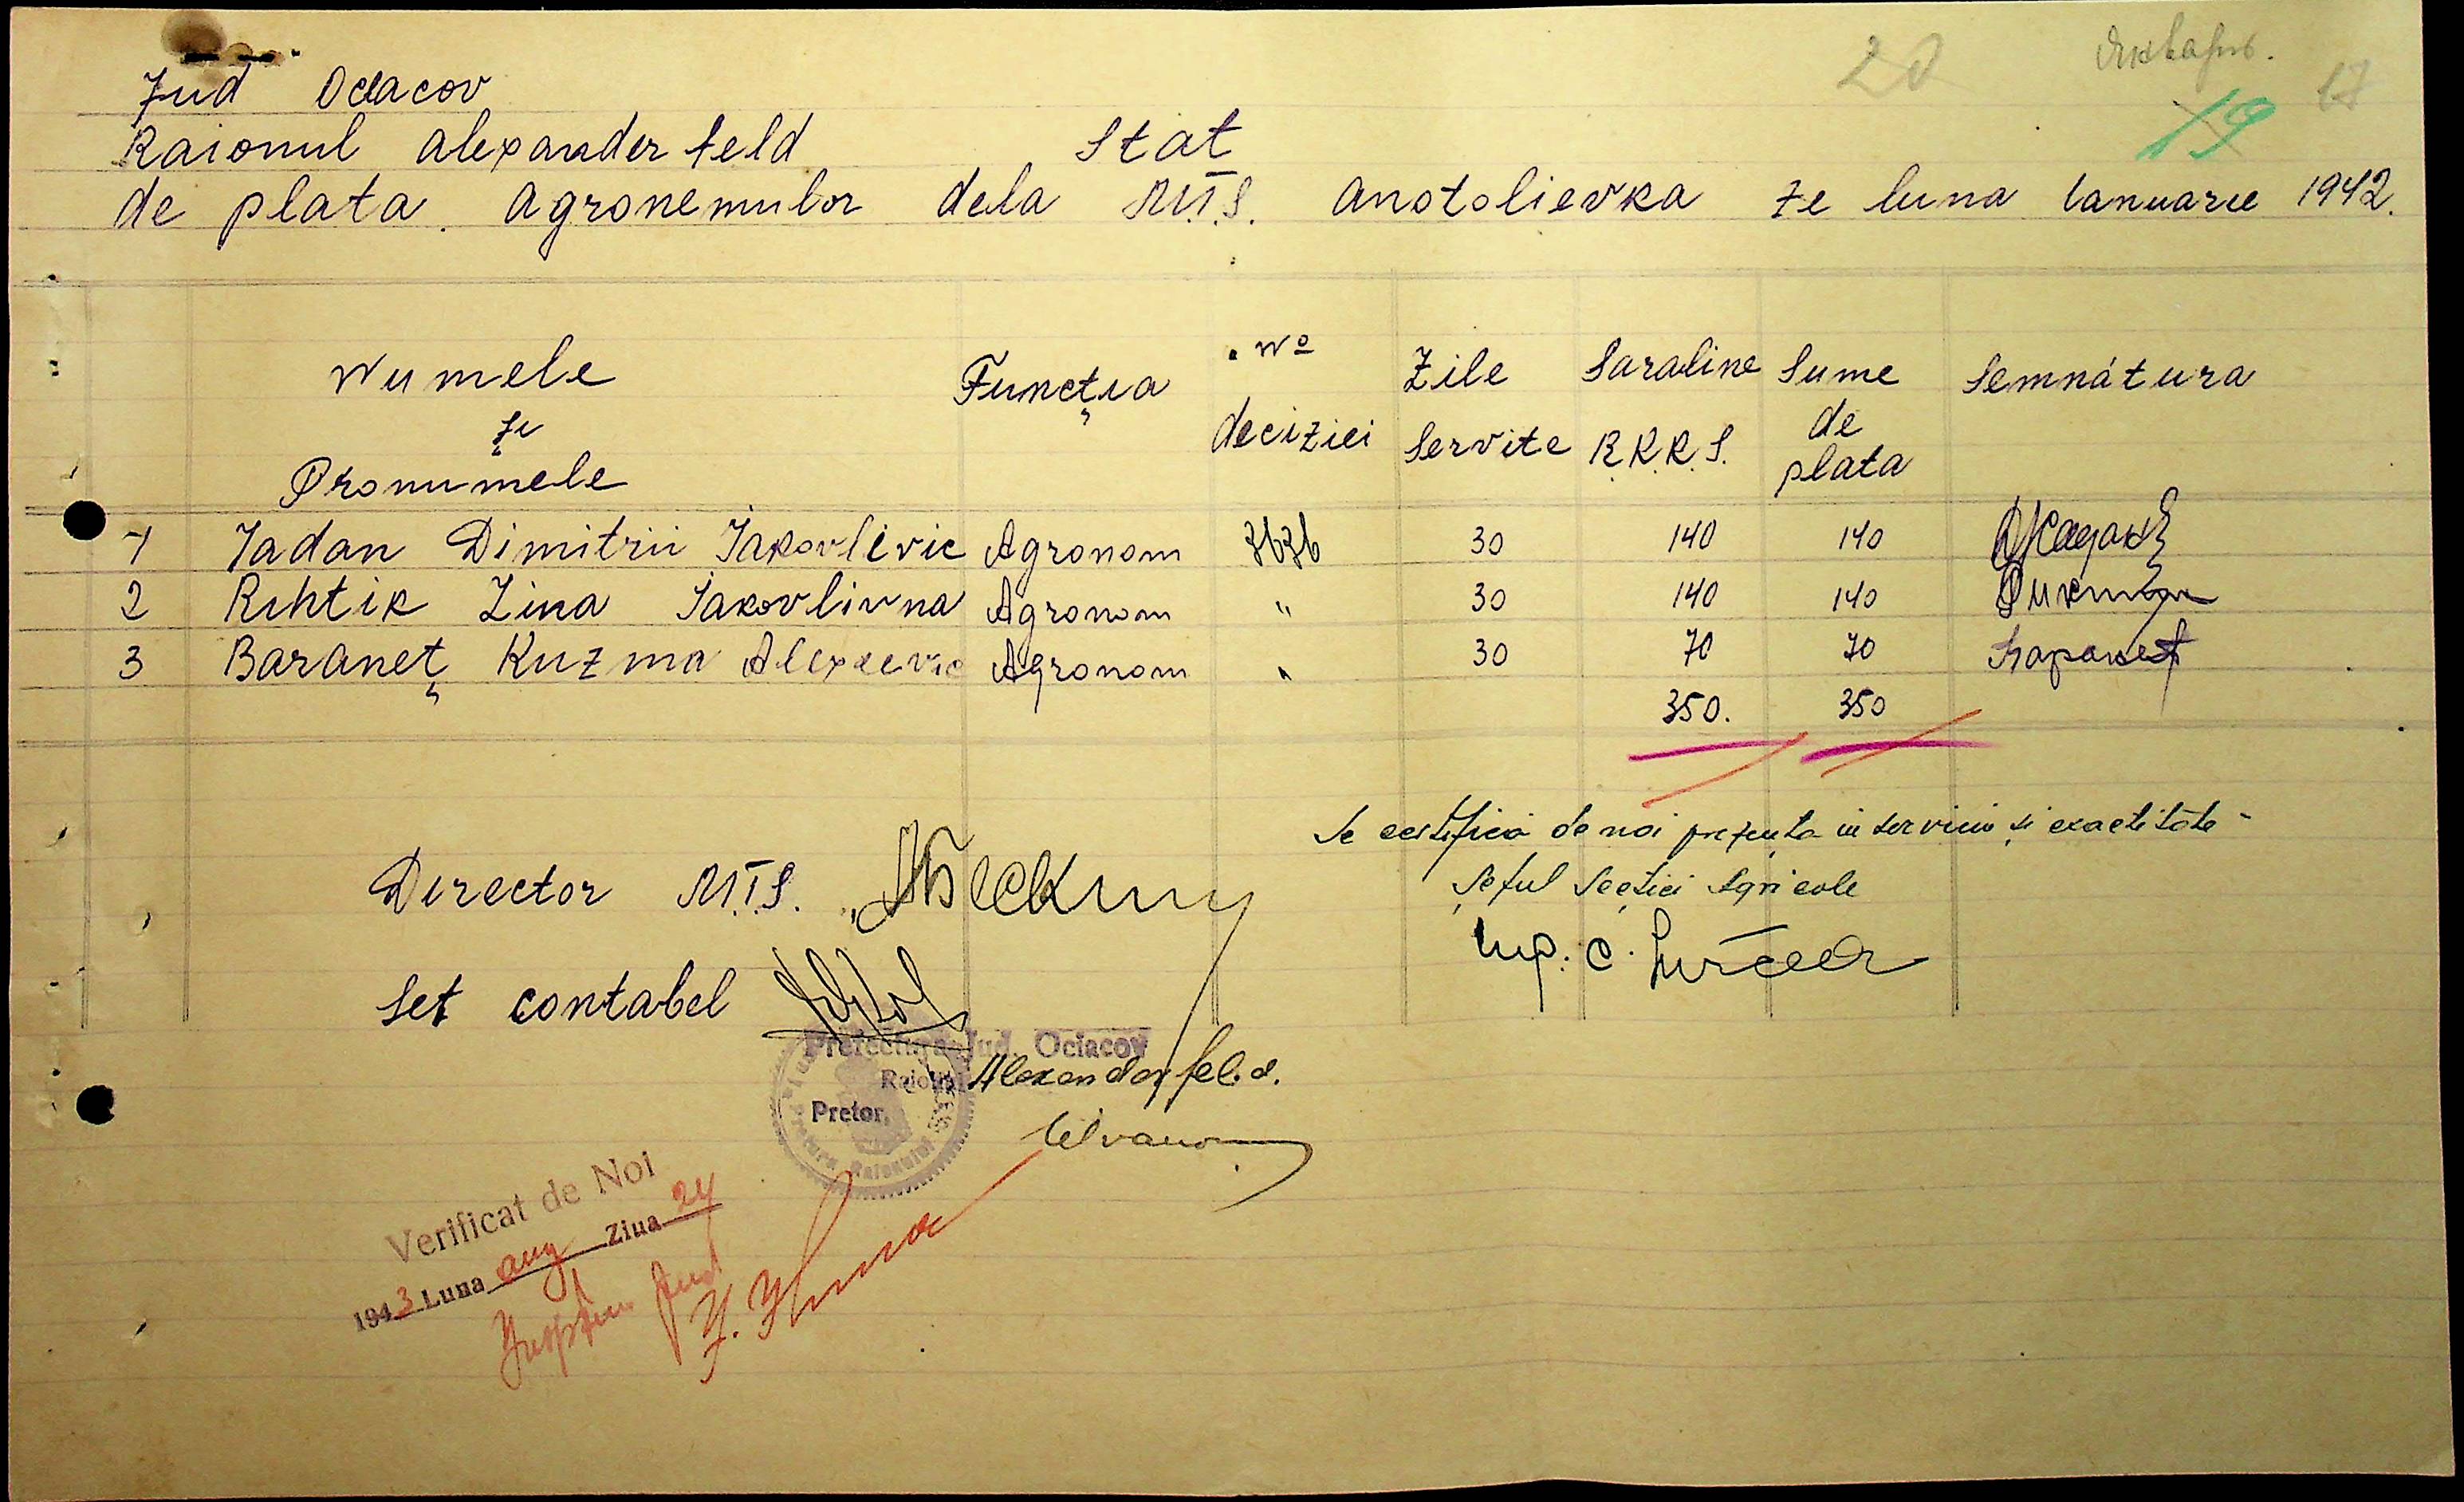 20
Январь.
17
19
Jud Ociacov
Raionul Alexanderfeld Stat
de plata Agronemulor dela M.T.S. Anotolievka pe luna Ianuarie 1942.
Numele și Pronumele Funcția Nº deciziei Zile Servite Saraline R.K.K.S. Sume de plata Semnátura
1 Jadan Dimitrii Jakovlevic Agronom 3636 30 140 140 Жадан
2 Rihtik Zina Jakovlivna Agronom " 30 140 140
3 Baraneț Kuzma Alexeevic Agronom " 30 70 70 Баранец
350. 350
Se certifică de noi prezența in serviciu și exactitate -
Director M.T.S.
Șeful Secției Agricole
Ing. C.
Șef contabel
Prefectura Jud. Ociacov
Raionul Alexanderfeld.
Pretor,
Verificat de Noi
1943 Luna aug Ziua 24
Jud